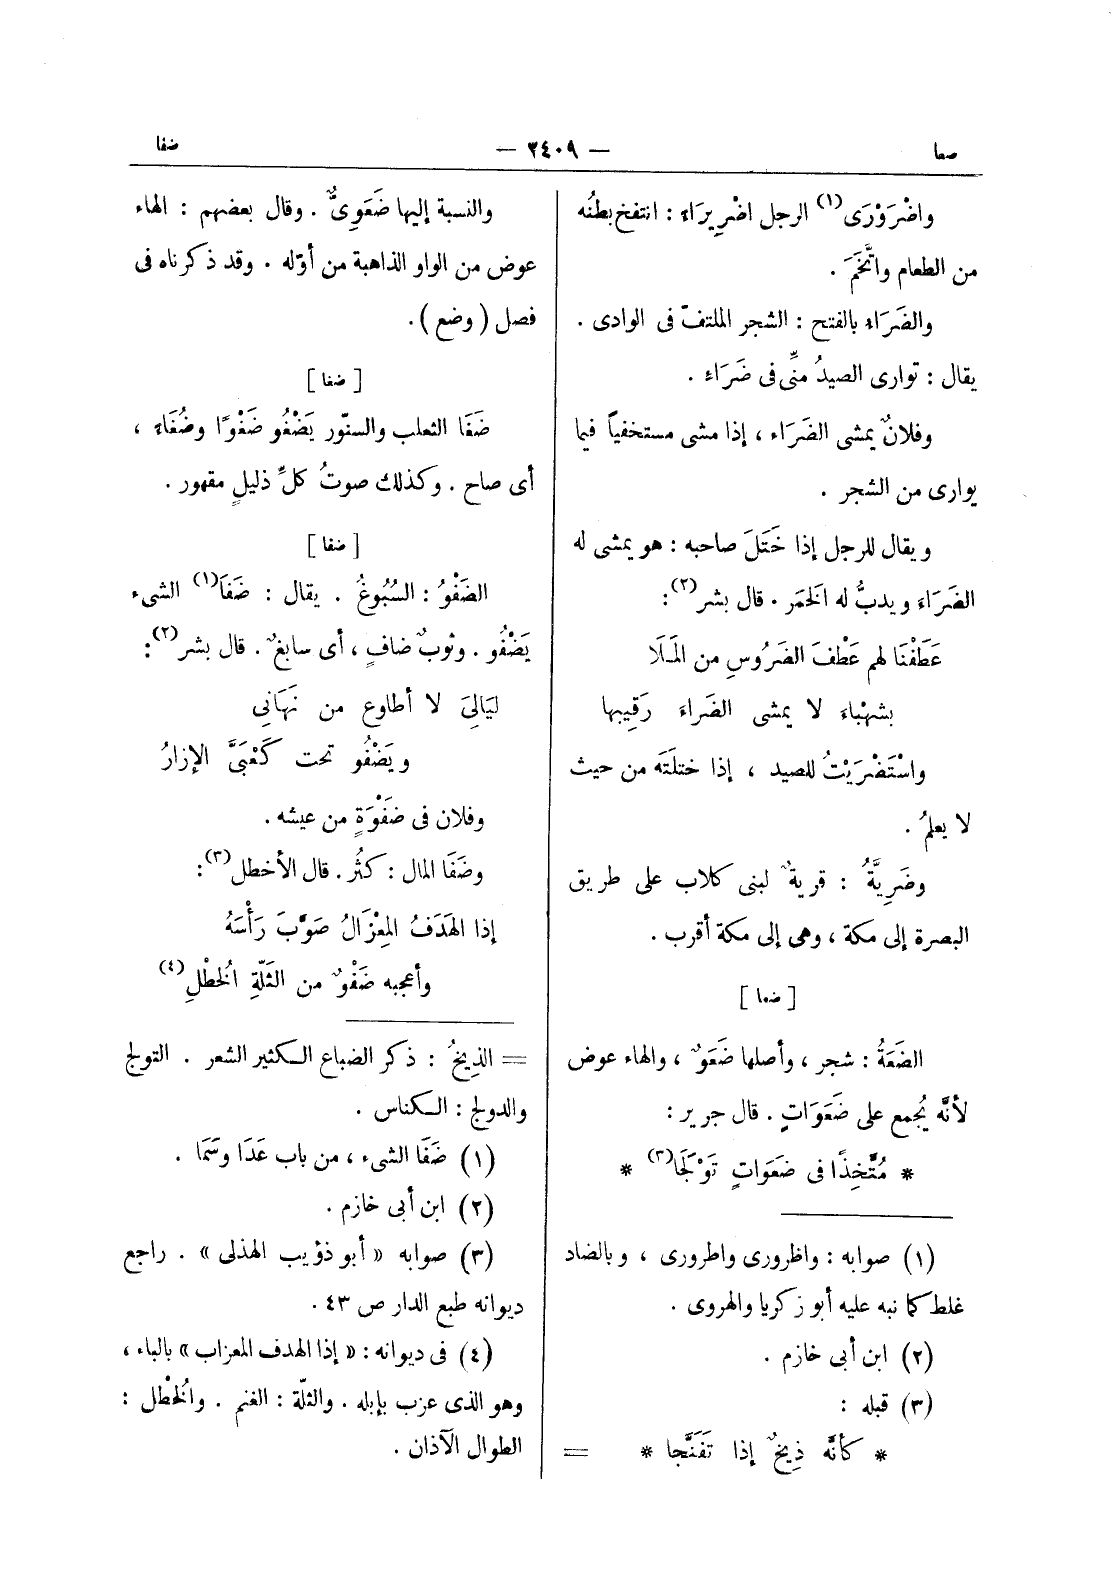 صعا — ٢٤٠٩ — ضفا
واضْرَوْرَى(١) الرجل اضْرِيرَاءً : انتفخ بطنُه
من الطعام واتَّخَمَ .
والضَرَاءُ بالفتح : الشجر الملتفّ فى الوادى .
يقال : توارى الصيدُ منِّى فى ضَرَاءٍ .
وفلانٌ يمشى الضَرَاءَ ، إذا مشى مستخفياً فيما
يوارى من الشجر .
ويقال للرجل إذا خَتَلَ صاحبه : هو يمشى له
الضَرَاءَ ويدبُّ له الخَمَر . قال بشر(٢) :
عَطَفْنَا لهم عَطْفَ الضَرُوسِ من المَلَا
بشهْبَاءَ لا يمشى الضَراءَ رَقِيبها
واسْتَضْرَيْتُ للصيد ، إذا ختلتَه من حيث
لا يعلمُ .
وضَرِيَّةُ : قريةٌ لبنى كلاب على طريق
البصرة إلى مكة ، وهى إلى مكة أقرب .
[ ضعا ]
الضَعَةُ : شجر ، وأصلها ضَعَوٌ ، والهاء عوض
لأنَّه يُجمع على ضَعَوَاتٍ . قال جرير :
* مُتَّخِذًا فى ضَعَوَاتٍ تَوْلَجَا(٣) *
(١) صوابه : واظرورى واطرورى ، وبالضاد
غلط كما نبه عليه أبو زكريا والهروى .
(٢) ابن أبى خازم .
(٣) قبله :
* كأنَّه ذِيخٌ إذا تَفَنَّجا * =
والنسبة إليها ضَعَوِىٌّ . وقال بعضهم : الهاء
عوض من الواو الذاهبة من أوّله . وقد ذكرناه فى
فصل ( وضع ) .
[ ضغا ]
ضَغَا الثعلب والسنّور يَضْغُو ضَغْوًا وضُغَاءً ،
أى صاح . وكذلك صوتُ كلِّ ذليلٍ مقهور .
[ ضفا ]
الضَفْوُ : السُبُوغُ . يقال : ضَفَا(١) الشىء
يَضْفُو . وثوبٌ ضافٍ ، أى سابغٌ . قال بشر(٢) :
ليَالِىَ لا أطاوع من نَهَانِى
ويَضْفُو تحت كَعْبَىَّ الإزارُ
وفلان فى ضَفْوَةٍ من عيشه .
وضَفَا المال : كثُر . قال الأخطل(٣) :
إذا الهَدَفُ المِعْزَالُ صَوَّبَ رَأْسَهُ
وأعجبه ضَفْوٌ من الثَلّةِ الخُطْلِ(٤)
= الذِيخُ : ذكر الضباع الكثير الشعر . التولج
والدولج : الكناس .
(١) ضَفَا الشىء ، من باب عَدَا وسَمَا .
(٢) ابن أبى خازم .
(٣) صوابه « أبو ذؤيب الهذلى » . راجع
ديوانه طبع الدار ص ٤٣ .
(٤) فى ديوانه : « إذا الهدف المعزاب » بالباء ،
وهو الذى عزب بإبله . والثلّة : الغنم . والخُطْل :
الطوال الآذان .